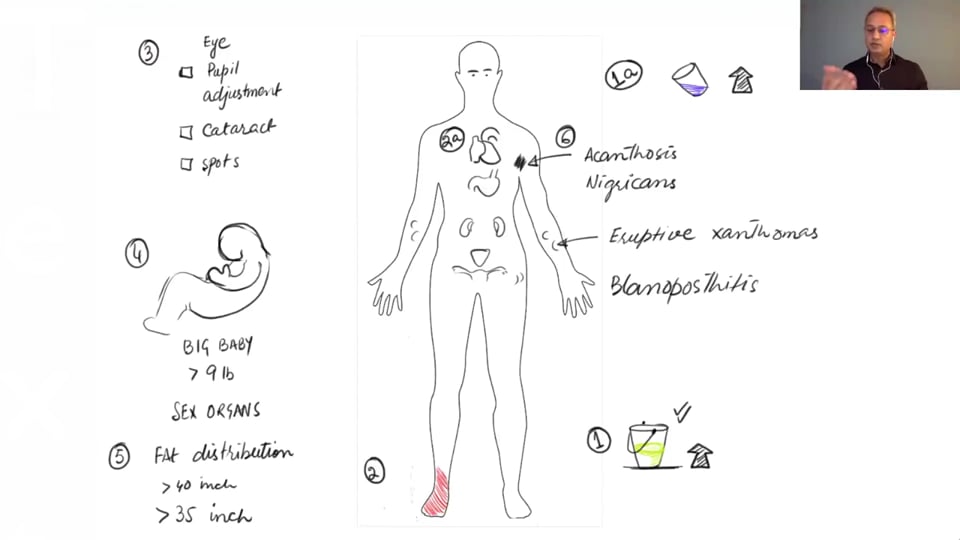 3
Eye
Pupil
adjustment
Cataract
spots
4
BIG BABY
> 9 lb
SEX ORGANS
5
FAt distribution
> 40 inch
> 35 inch
2a
2
1a
6
Acanthosis
Nigricans
Eruptive xanthomas
Blanoposthitis
1